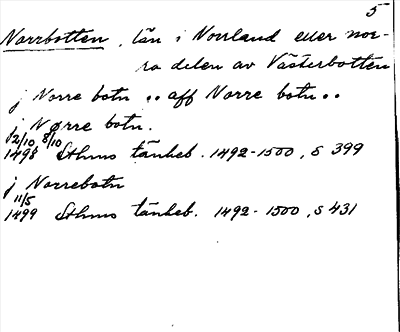 5
Norrbotten, län i Norrland eller nor-
ra delen av Västerbotten
j Norre botn .. aff Norre botn ..
j Nørre botn.
2/10, 8/10
1498 Sthms tänkeb. 1492-1500, s 399
j Norrebotn
11/5
1499 Sthms tänkeb. 1492-1500, s 431